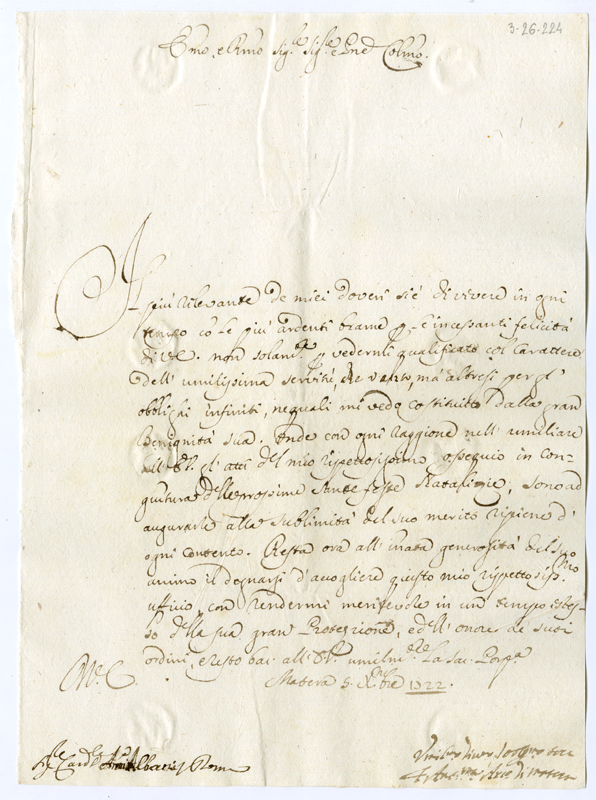 3-26-224
Emo, e Rmo Sig.re Sig.re e Pne Colmo.
Il più rilevante de miei doveri si è di vivere in ogni
tempo cō le più ardenti brame p l'incessanti felicità
di V.E. non solam.te p vedermi qualificato col Carattere
dell'umilissima servitù, che vanto, mà altresi per gl'
obblighi infiniti, ne quali mi vedo costituito dalla gran
Benignità sua. Onde con ogni raggione nell'umiliare
all'E.V. gl'atti del mio rispettosissimo ossequio in con-
giuntura dell'enrossime Sante feste Natalizie, sono ad
augurarle alla sublimità del suo merito ripiene d'
ogni contento. Resta ora all'inata generosità del suo
animo il degnarsi d'accogliere questo mio rispettosiss.mo
ufficio, con rendermi meritevole in un tempo istes-
so della sua gran Protezzione, e dell'onore de suoi
ordini, e resto bac. all'E.V. umilm.te la Sac. Porp.a
Matera 5. Xbre 1722.
V.E.
Sig.re Card.le Albani Roma